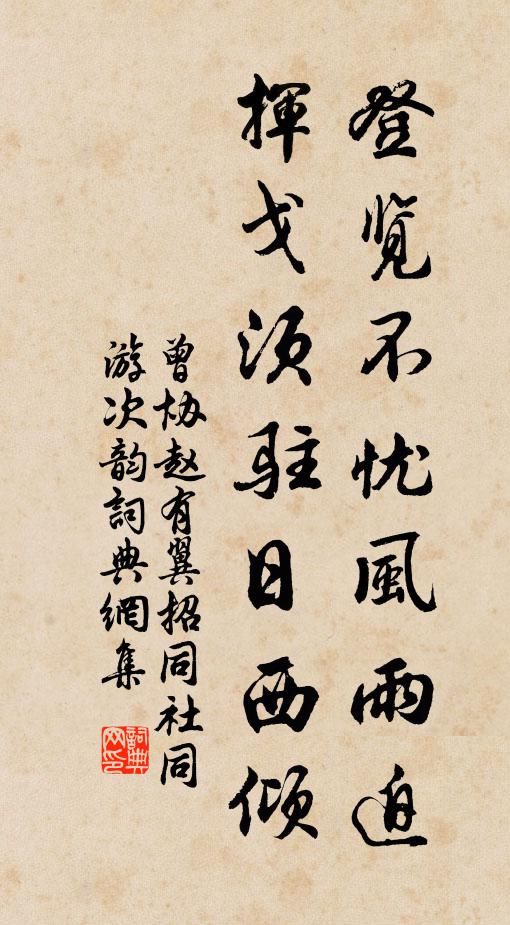 登览不忧風雨迫
揮戈须駐日西倾
曾协赵有翼招同社同
游次韵詞典網集
詞典
网印